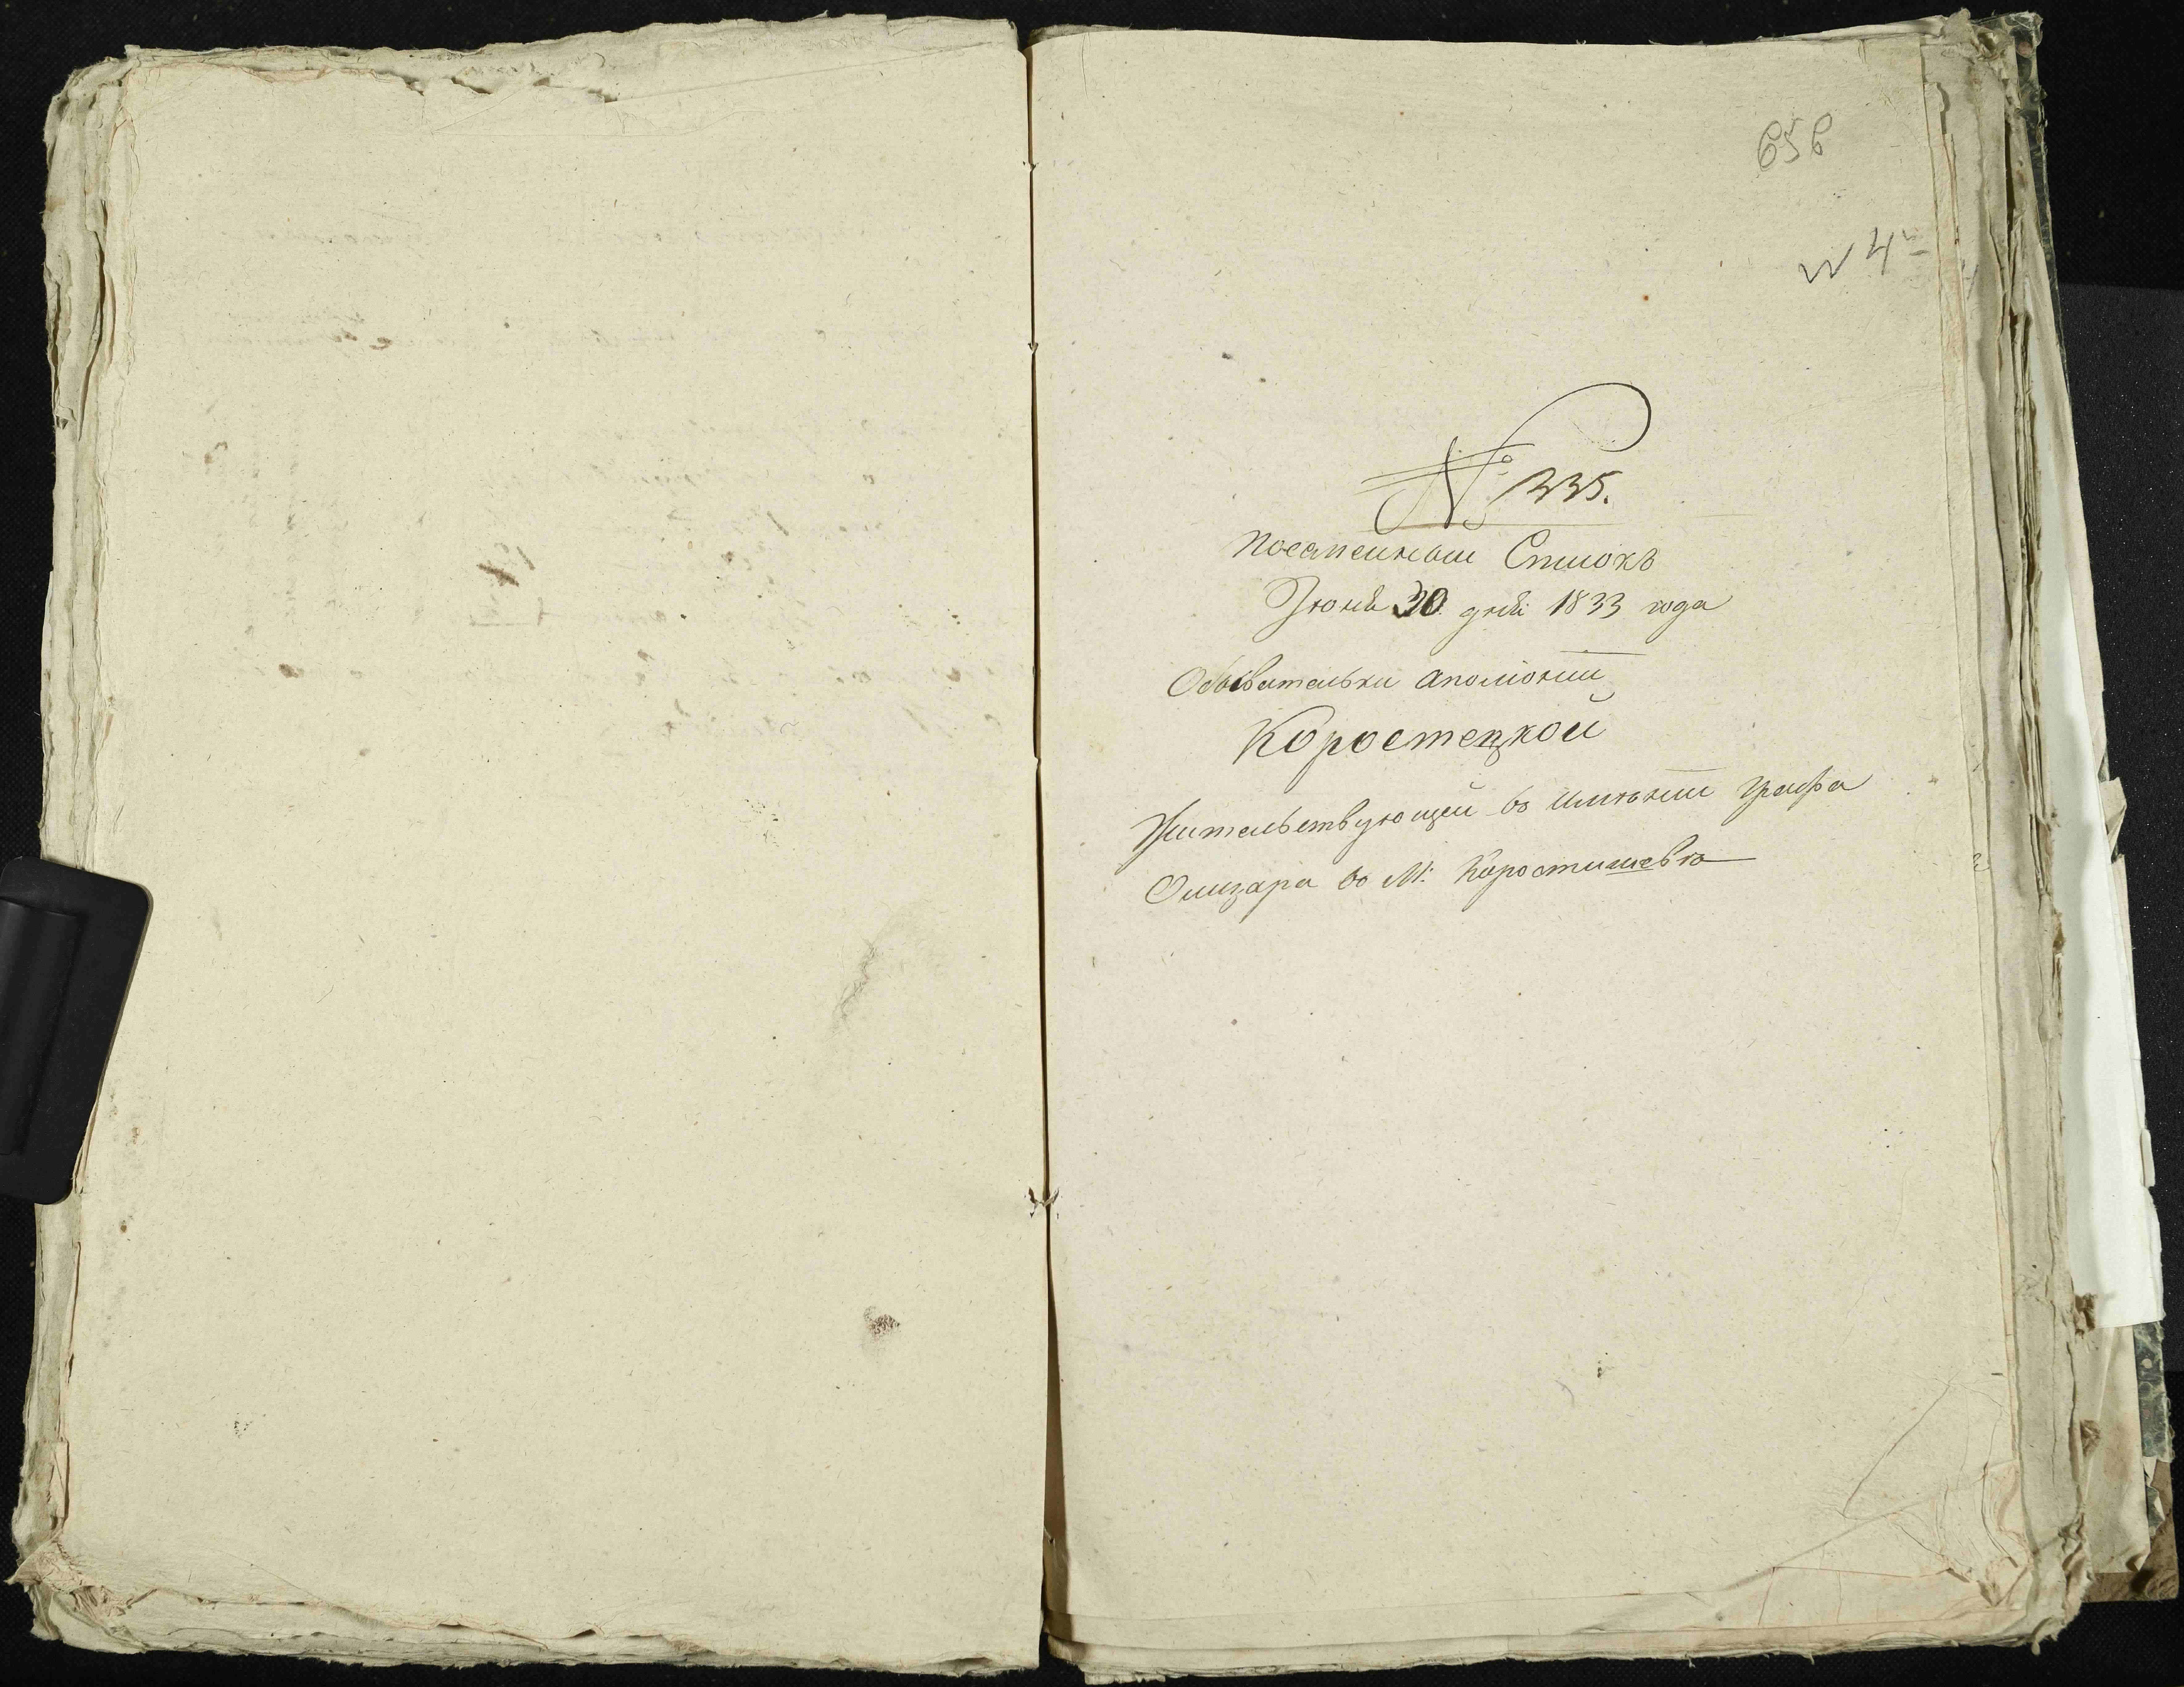 656
N 4
№ 335.
Посемейный Списокъ
Іюня 30 дня 1833 года
Обывательки Аполіоніи
Коростецкой
Жительствующей въ имѣніи Графа
Олизара въ М: Коростишевѣ